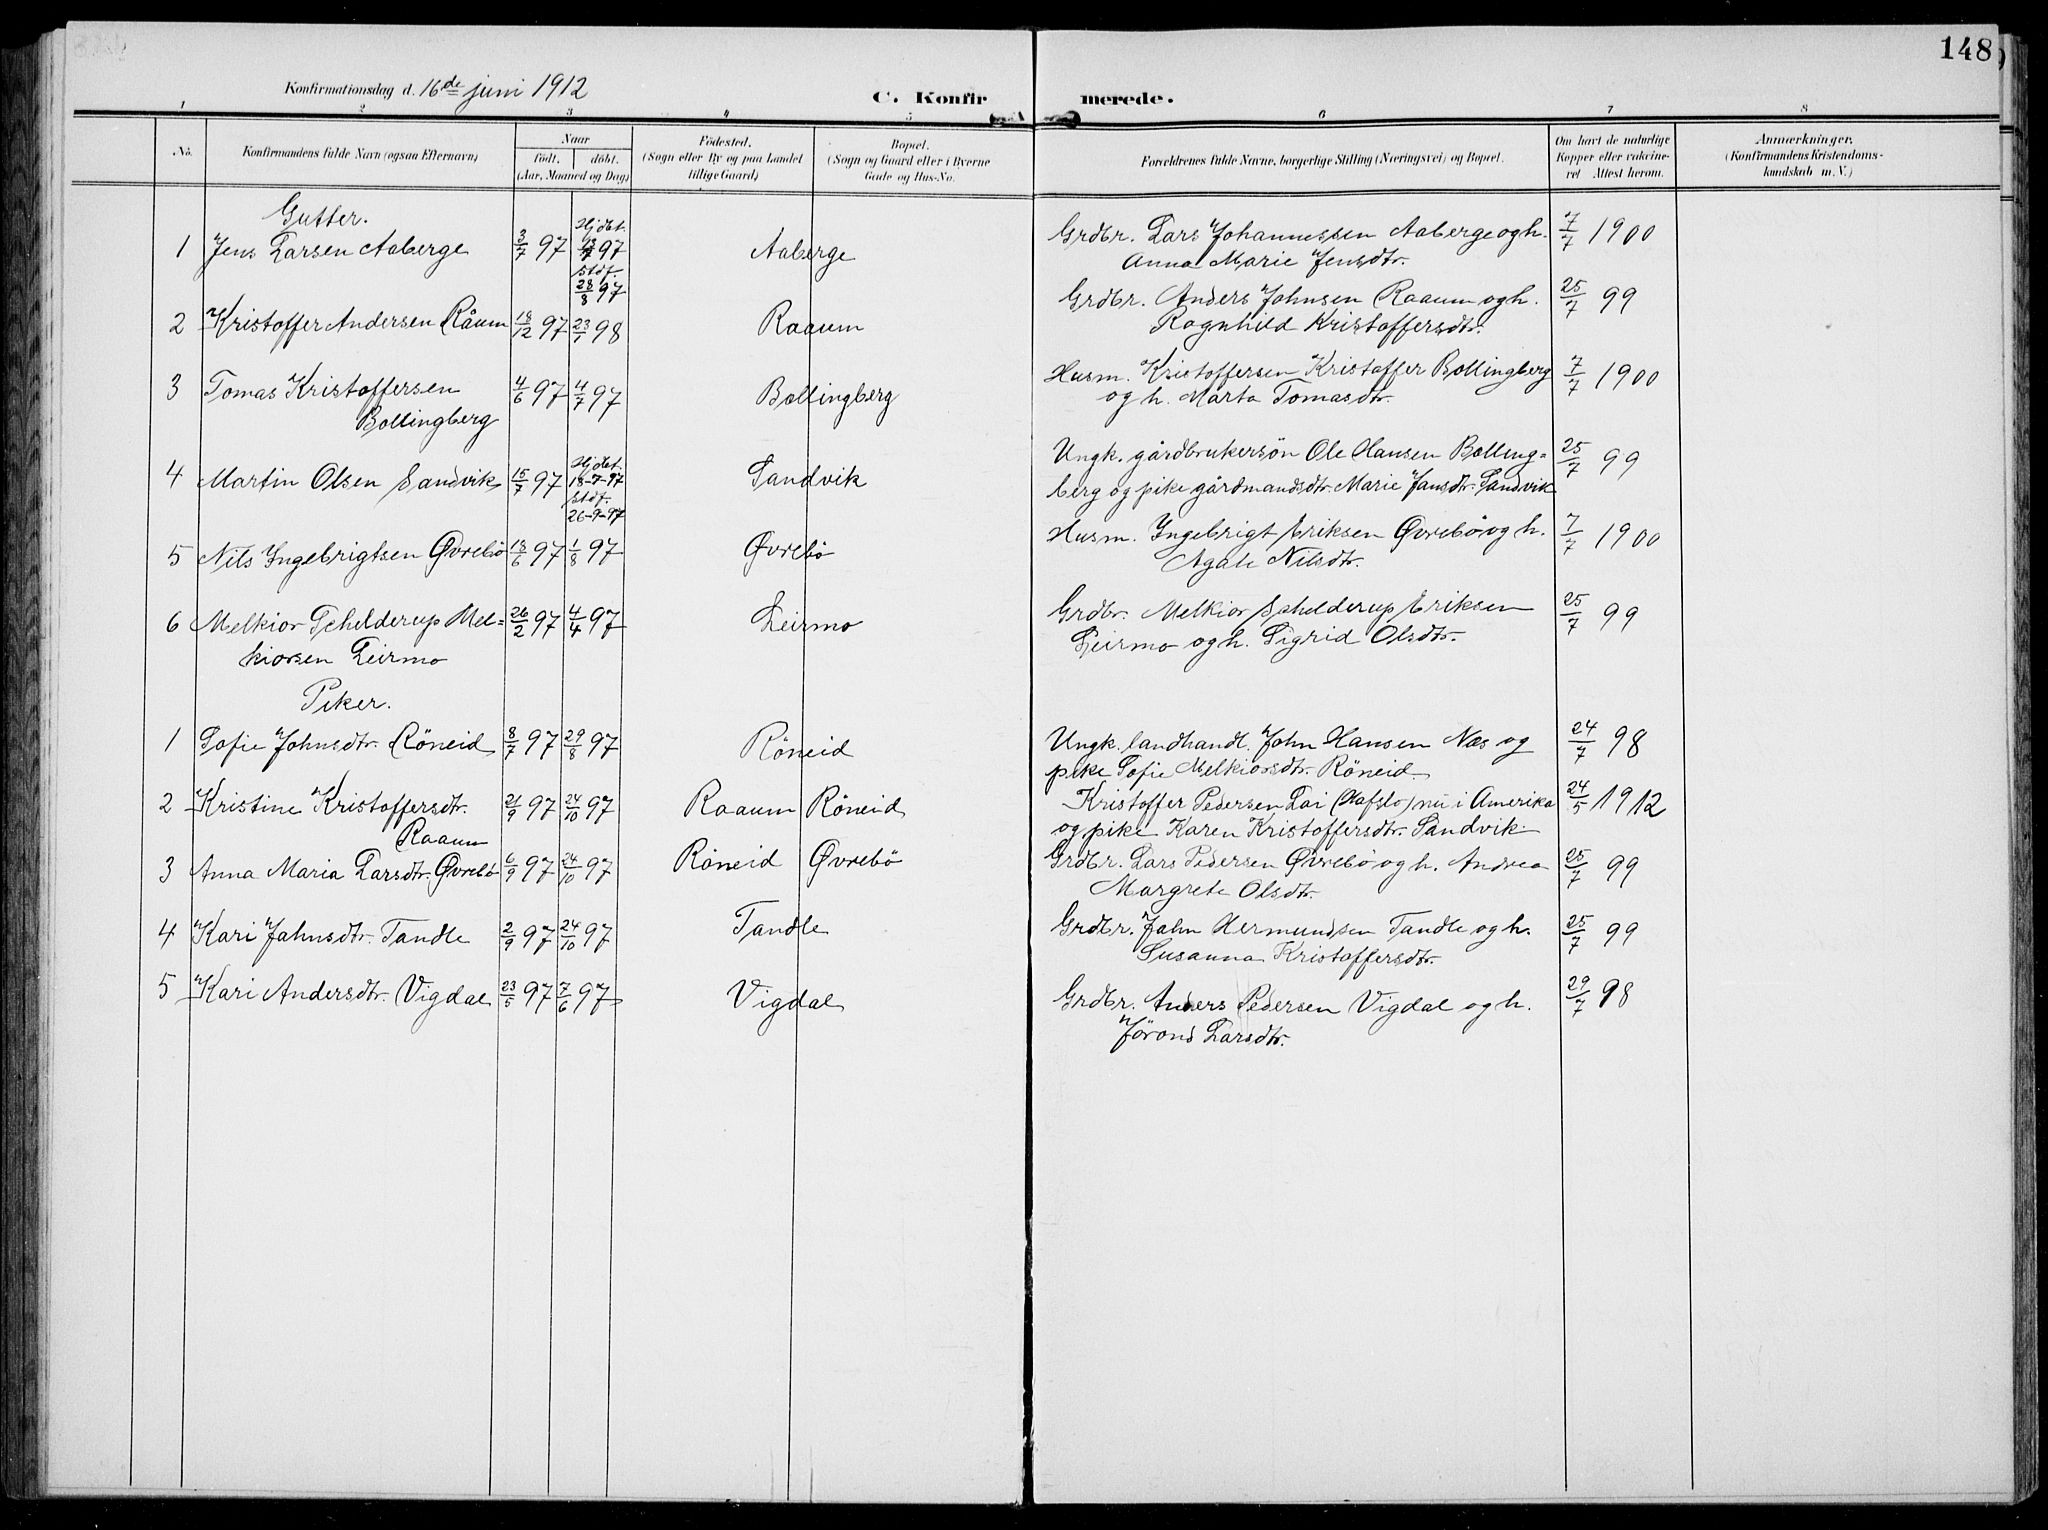 148
Konfirmationsdag d. 16de juni 1912
C. Konfirmerede.
1 2 3 4 5 6 7 8
No. Konfirmandens fulde Navn (ogsaa Efternavn) Naar født. døbt. (Aar, Maaned og Dag) Fødested. (Sogn eller By og paa Landet tillige Gaard) Bopæl. (Sogn og Gaard eller i Byerne Gade og Hus-No. Forældrenes fulde Navne, borgerlige Stilling (Næringsvei) og Bopæl. Om havt de naturlige Kopper eller vakcineret Attest herom. Anmærkninger. (Konfirmandens Kristendomskundskab m. V.)
Gutter.
1 Jens Larsen Aaberge 3/7 97 Hj.døbt. 97 stdf. 28/8 97 Aaberge Grdbr. Lars Johannessen Aaberge og h. 7/7 1900
Anna Marie Jensdtr.
2 Kristoffer Andersen Råum 18/12 97 23/1 98 Raaum Grdbr. Anders Johnsen Raaum og h. 25/7 99
Ragnhild Kristoffersdtr.
3 Tomas Kristoffersen 4/6 97 4/7 97 Bollingberg Husm. Kristoffersen Kristoffer Bollingberg 7/7 1900
Bollingberg og h. Marta Tomasdtr.
4 Martin Olsen Sandvik 15/7 97 Hj.døbt. 18-7-97 stdf. 26-9-97 Sandvik Ungk. gårdbrukersøn Ole Hansen Bolling= 25/7 99
berg og pike gårdmandsdtr. Marie Jansdtr. Sandvik
5 Nils Ingebrigtsen Øvrebö 18/6 97 1/8 97 Øvrebö Husm. Ingebrigt Eriksen Øvrebö og h. 7/7 1900
Agate Nilsdtr.
6 Melkior Schelderup Mel= 26/2 97 4/4 97 Leirmo Grdbr. Melkior Schelderup Eriksen 25/7 99
kiorsen Leirmo Leirmo og h. Sigrid Olsdtr.
Piker.
1 Sofie Johnsdtr. Röneid 8/7 97 29/8 97 Röneid Ungk. landhandl. John Hansen Næs og 24/7 98
pike Sofie Melkiorsdtr. Röneid
2 Kristine Kristoffersdtr. 21/9 97 24/10 97 Raaum Röneid Kristoffer Pedersen Lai (Hafslo) nu i Amerika 24/5 1912
Raaum og pike Karen Kristoffersdtr. Sandvik
3 Anna Maria Larsdtr. Øvrebö 6/9 97 24/10 97 Röneid Øvrebö Grdbr. Lars Pedersen Øvrebö og h. Andrea 25/7 99
Margrete Olsdtr.
4 Kari Jahnsdtr. Tandle 2/9 97 24/10 97 Tandle Grdbr. Jahn Hermundsen Tandle og h. 25/7 99
Susanna Kristoffersdtr.
5 Kari Andersdtr. Vigdal 23/5 97 7/6 97 Vigdal Grdbr. Anders Pedersen Vigdal og h. 29/7 98
Jörond Larsdtr.